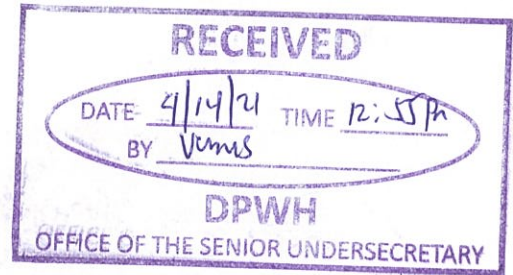 RECEIVED
DATE 4/14/21 TIME 12:55Pm
BY Venus
DPWH
OFFICE OF THE SENIOR UNDERSECRETARY